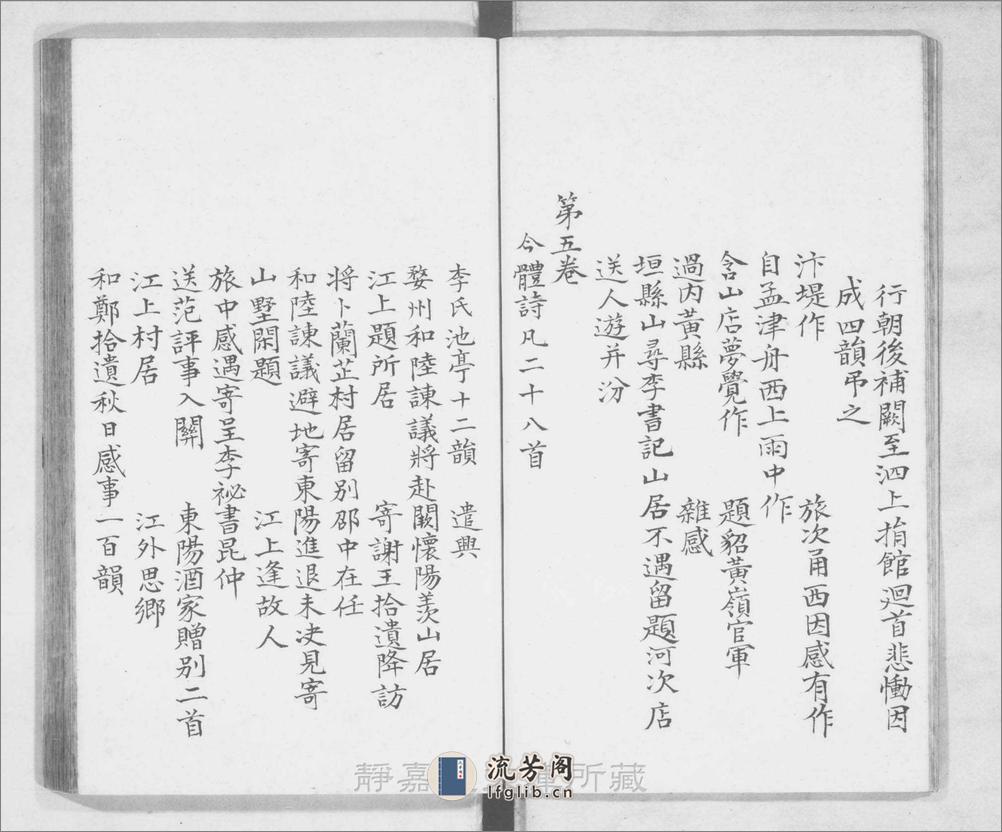 行朝後補闕至泗上捐館迴首悲慟因
成四韻弔之
汴堤作　旅次甬西因感有作
自孟津舟西上雨中作
含山店夢覺作　題貂黃嶺官軍
過內黃縣　雜感
垣縣山尋李書記山居不遇留題河次店
送人遊并汾
第五卷
今體詩凡二十八首
李氏池亭十二韻　遣興
婺州和陸諫議將赴闕懷陽羨山居
江上題所居　寄謝王拾遺降訪
將卜蘭芷村居留別郡中在任
和陸諫議避地寄東陽進退未決見寄
山墅閑題　江上逢故人
旅中感遇寄呈李祕書昆仲
送范評事入關　東陽酒家贈別二首
江上村居　江外思鄉
和鄭拾遺秋日感事一百韻
靜嘉
所藏
流芳阁
lfglib.cn